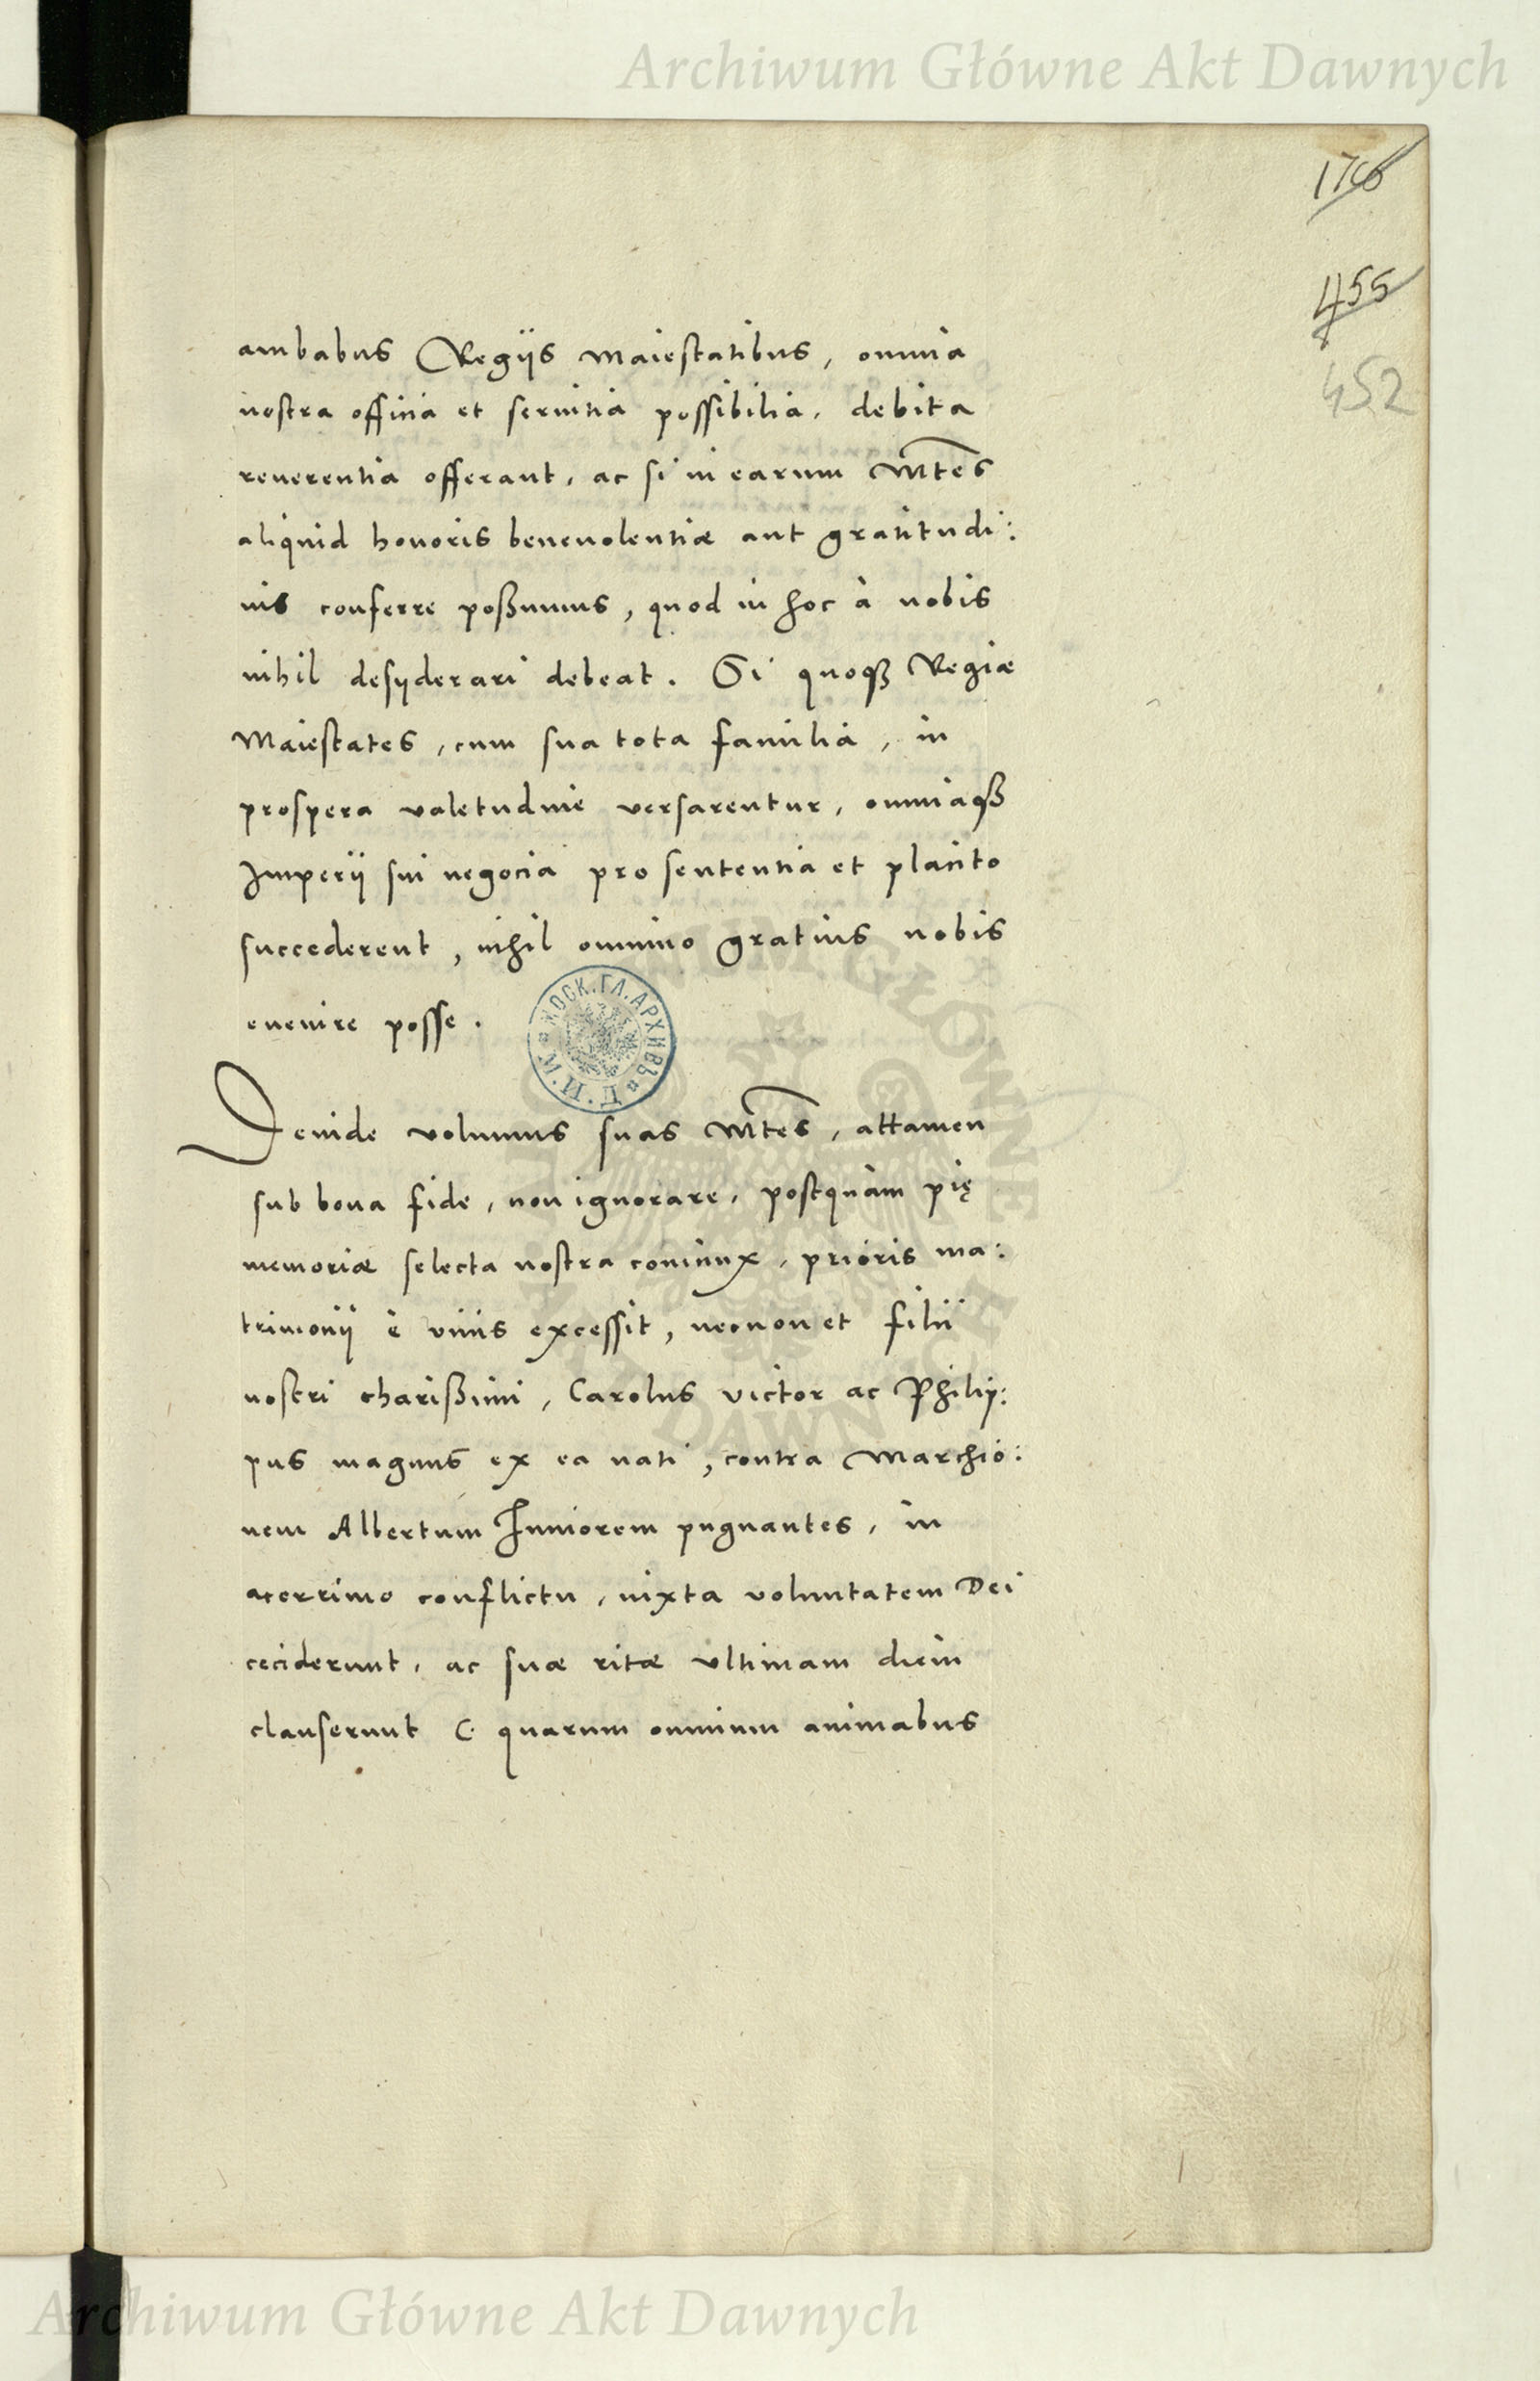 Archiwum Główne Akt Dawnych
176
455
452
ambabus Regijs Maiestatibus, omnia
nostra officia et seruitia possibilia, debita
reuerentia offerant, ac si in earum Mtes
aliquid honoris beneuolentiæ aut gratitudi:
nis conferre poßumus, quod in hoc à nobis
nihil desyderari debeat. Si quoqз Regiæ
Maiestates, cum sua tota familia, in
prospera valetudine versarentur, omniaqз
Imperij sui negocia pro sententia et placito
succederent, nihil omnino gratius nobis
euenire posse.
МОСК.ГЛ.АРХИВЪ М.И.Д.
Deinde volumus suas Mtes, attamen
sub bona fide, non ignorare, postquàm pię
memoriæ selecta nostra coniunx, prioris ma:
trimonij è viuis excessit, necnon et filii
nostri charißimi, Carolus victor ac Philip:
pus magnus ex ea nati, contra Marchio:
nem Albertum Iuniorem pugnantes, in
acerrimo conflictu, iuxta voluntatem Dei
ceciderunt, ac suæ vitæ vltimam diem
clauserunt C. quarum omnium animabus
ARCHIWUM GŁÓWNE AKT DAWNYCH
Archiwum Główne Akt Dawnych